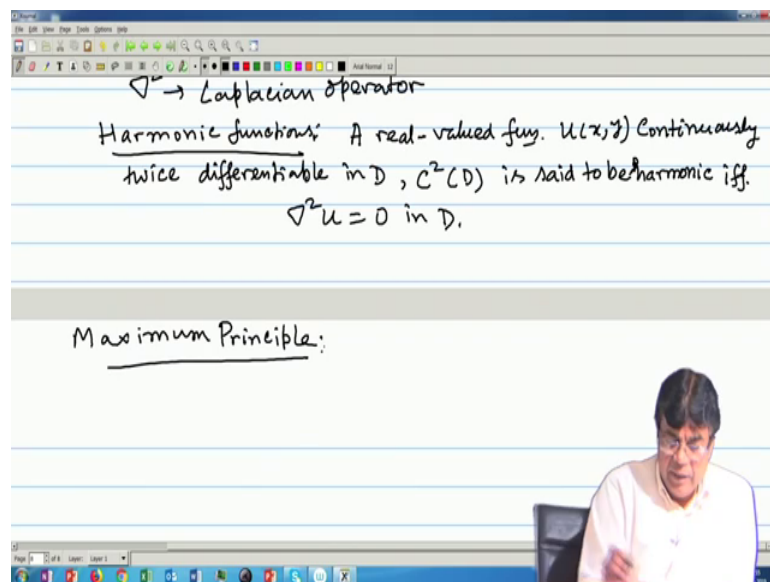 Journal
File Edit View Page Tools Options Help
Arial Normal 12
∇² → Laplacian operator
Harmonic functions: A real-valued fun. U(x,y) Continuously
twice differentiable in D, C²(D) is said to be harmonic iff.
∇²U = 0 in D.
Maximum Principle:
Page 8 of 8 Layer: Layer 1